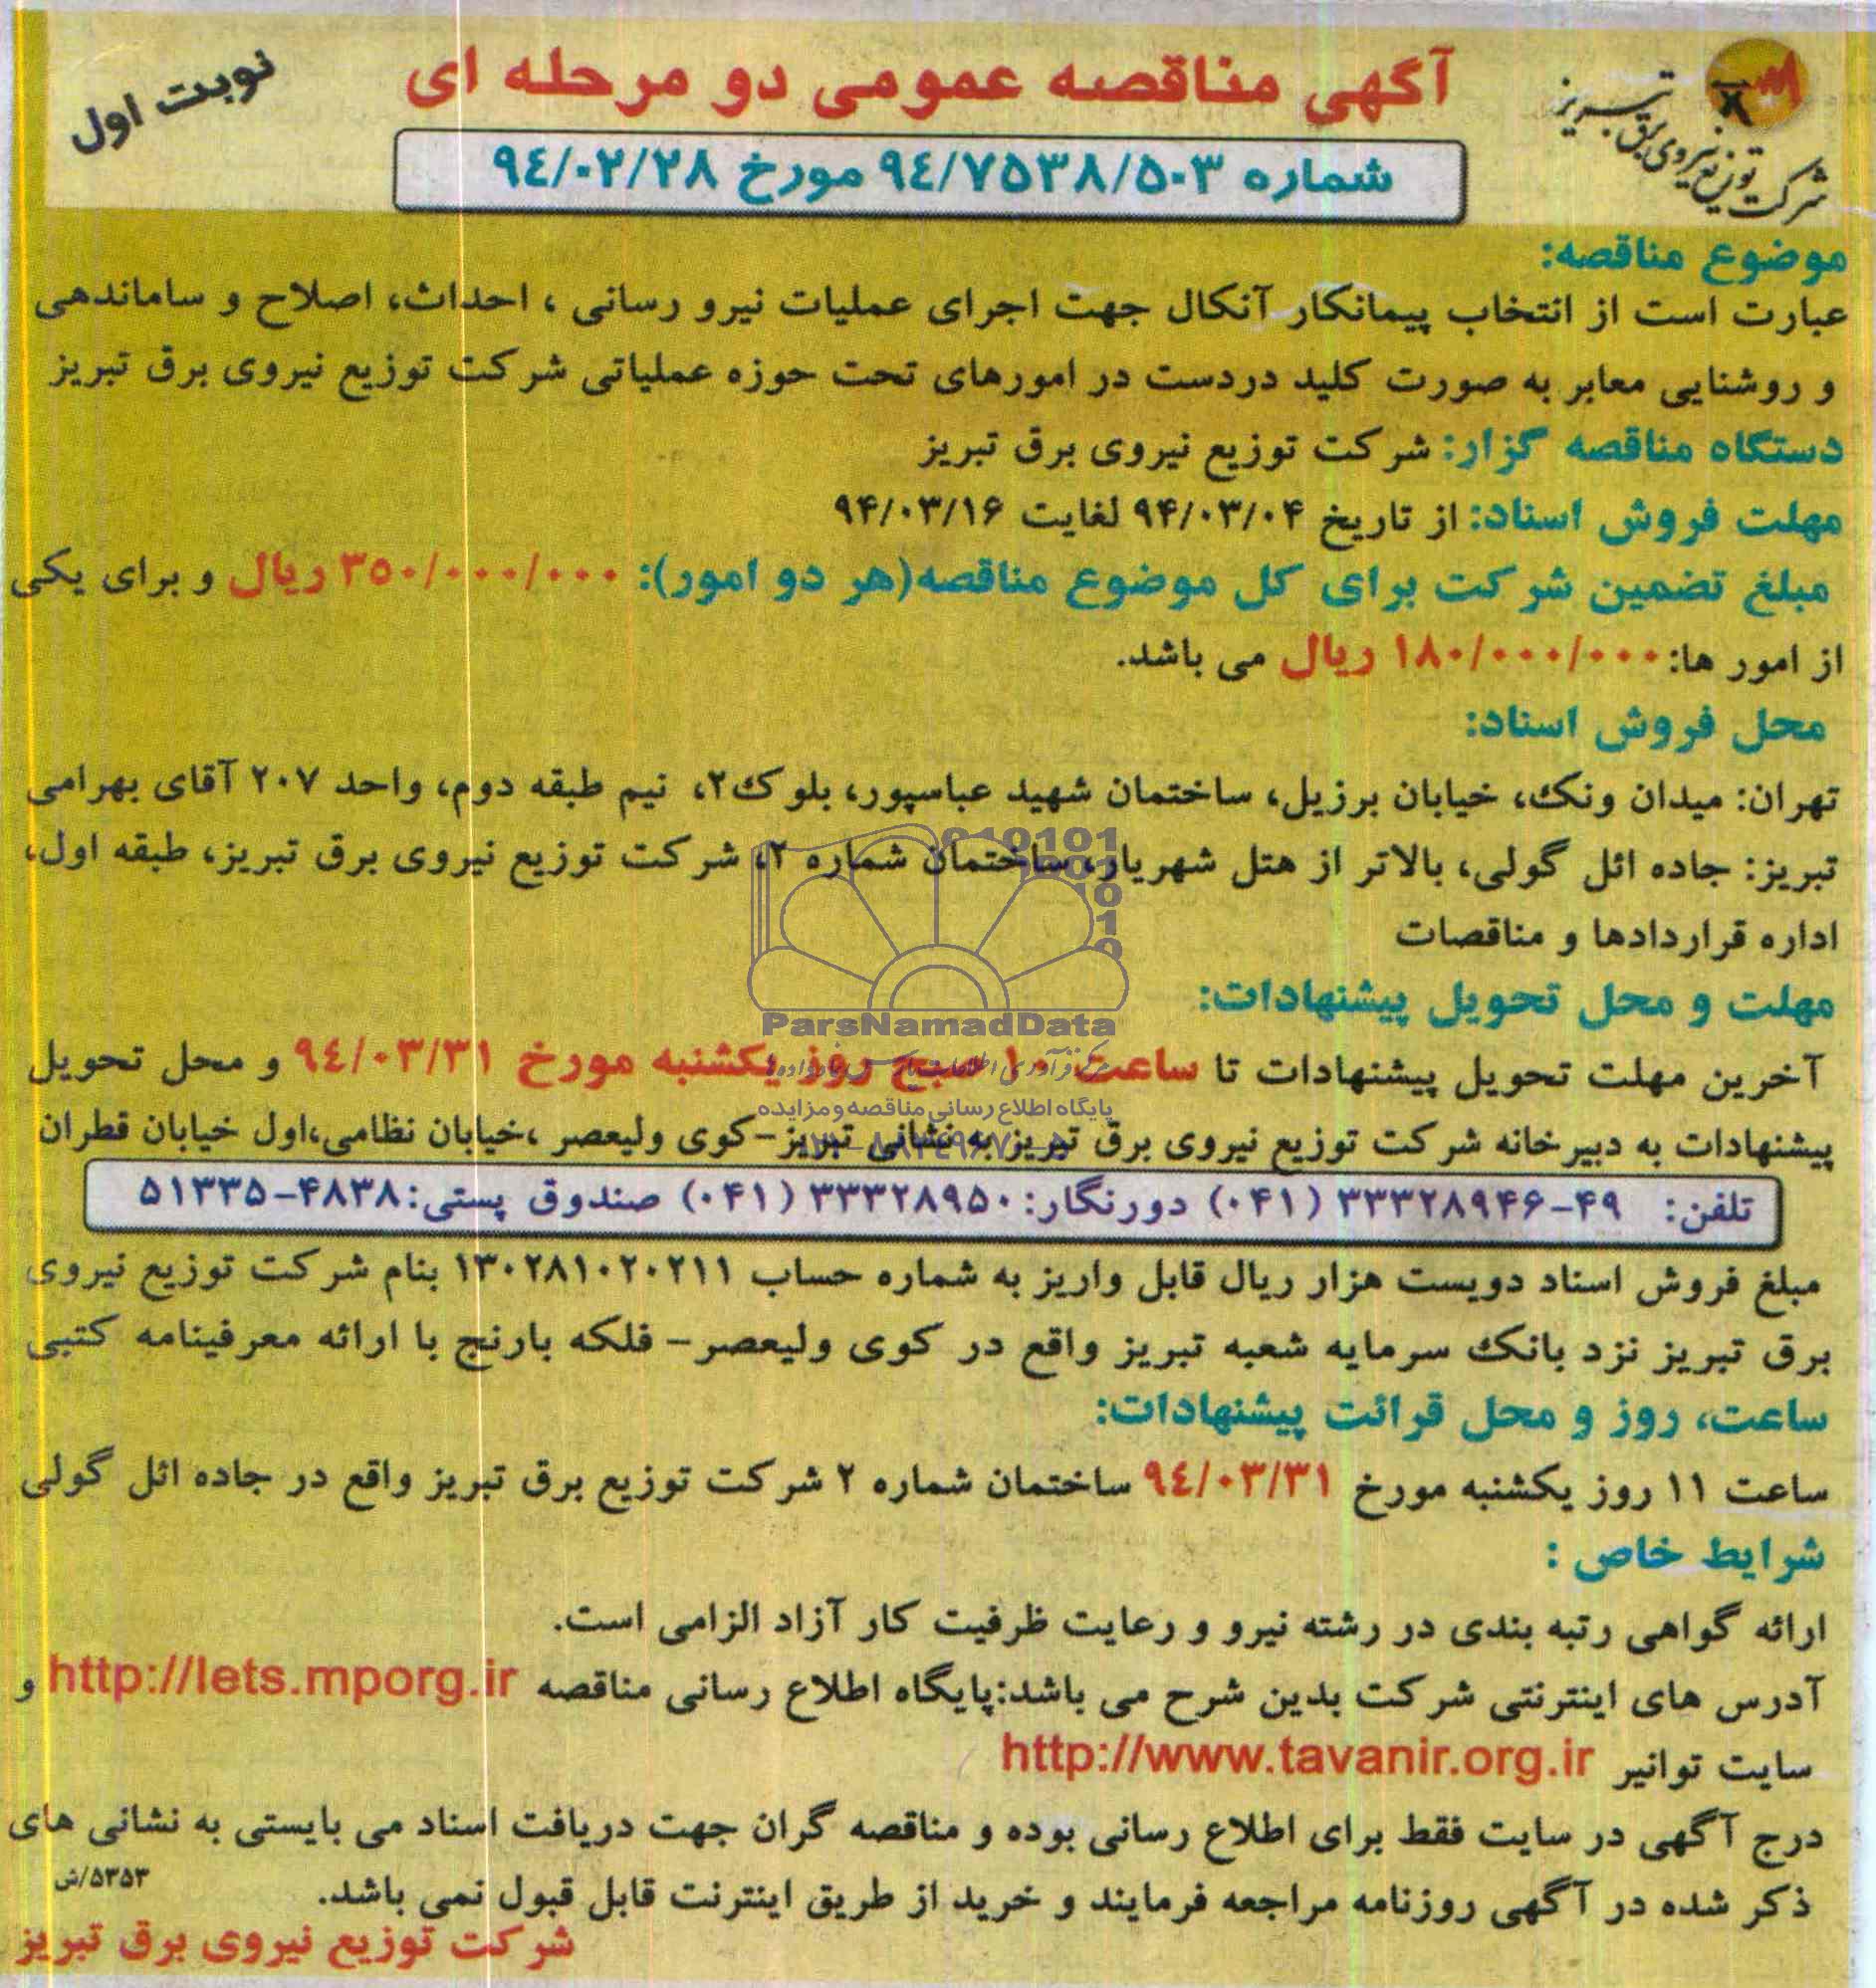 شرکت توزیع نیروی برق تبریز
آگهی مناقصه عمومی دو مرحله ای
نوبت اول
شماره ۹۴/۷۵۳۸/۵۰۳ مورخ ۹۴/۰۲/۲۸
موضوع مناقصه:
عبارت است از انتخاب پیمانکار آنکال جهت اجرای عملیات نیرو رسانی ، احداث، اصلاح و ساماندهی
و روشنایی معابر به صورت کلید دردست در امورهای تحت حوزه عملیاتی شرکت توزیع نیروی برق تبریز
دستگاه مناقصه گزار: شرکت توزیع نیروی برق تبریز
مهلت فروش اسناد: از تاریخ ۹۴/۰۳/۰۴ لغایت ۹۴/۰۳/۱۶
مبلغ تضمین شرکت برای کل موضوع مناقصه(هر دو امور): ۳۵۰/۰۰۰/۰۰۰ ریال و برای یکی
از امور ها: ۱۸۰/۰۰۰/۰۰۰ ریال می باشد.
محل فروش اسناد:
تهران: میدان ونک، خیابان برزیل، ساختمان شهید عباسپور، بلوک۲، نیم طبقه دوم، واحد ۲۰۷ آقای بهرامی
تبریز: جاده ائل گولی، بالاتر از هتل شهریار، ساختمان شماره ۲، شرکت توزیع نیروی برق تبریز، طبقه اول،
اداره قراردادها و مناقصات
مهلت و محل تحویل پیشنهادات:
آخرین مهلت تحویل پیشنهادات تا ساعت ۱۰ صبح روز یکشنبه مورخ ۹۴/۰۳/۳۱ و محل تحویل
پیشنهادات به دبیرخانه شرکت توزیع نیروی برق تبریز به نشانی تبریز-کوی ولیعصر ،خیابان نظامی،اول خیابان قطران
تلفن: ۴۹-۳۳۳۲۸۹۴۶ (۰۴۱) دورنگار: ۳۳۳۲۸۹۵۰ (۰۴۱) صندوق پستی: ۴۸۳۸-۵۱۳۳۵
مبلغ فروش اسناد دویست هزار ریال قابل واریز به شماره حساب ۱۳۰۲۸۱۰۲۰۲۱۱ بنام شرکت توزیع نیروی
برق تبریز نزد بانک سرمایه شعبه تبریز واقع در کوی ولیعصر- فلکه بارنج با ارائه معرفینامه کتبی
ساعت، روز و محل قرائت پیشنهادات:
ساعت ۱۱ روز یکشنبه مورخ ۹۴/۰۳/۳۱ ساختمان شماره ۲ شرکت توزیع برق تبریز واقع در جاده ائل گولی
شرایط خاص :
ارائه گواهی رتبه بندی در رشته نیرو و رعایت ظرفیت کار آزاد الزامی است.
آدرس های اینترنتی شرکت بدین شرح می باشد:پایگاه اطلاع رسانی مناقصه http://lets.mporg.ir و
سایت توانیر http://www.tavanir.org.ir
درج آگهی در سایت فقط برای اطلاع رسانی بوده و مناقصه گران جهت دریافت اسناد می بایستی به نشانی های
ذکر شده در آگهی روزنامه مراجعه فرمایند و خرید از طریق اینترنت قابل قبول نمی باشد.
۵۳۵۳/ش
شرکت توزیع نیروی برق تبریز
ParsNamadData
پایگاه اطلاع رسانی مناقصه و مزایده